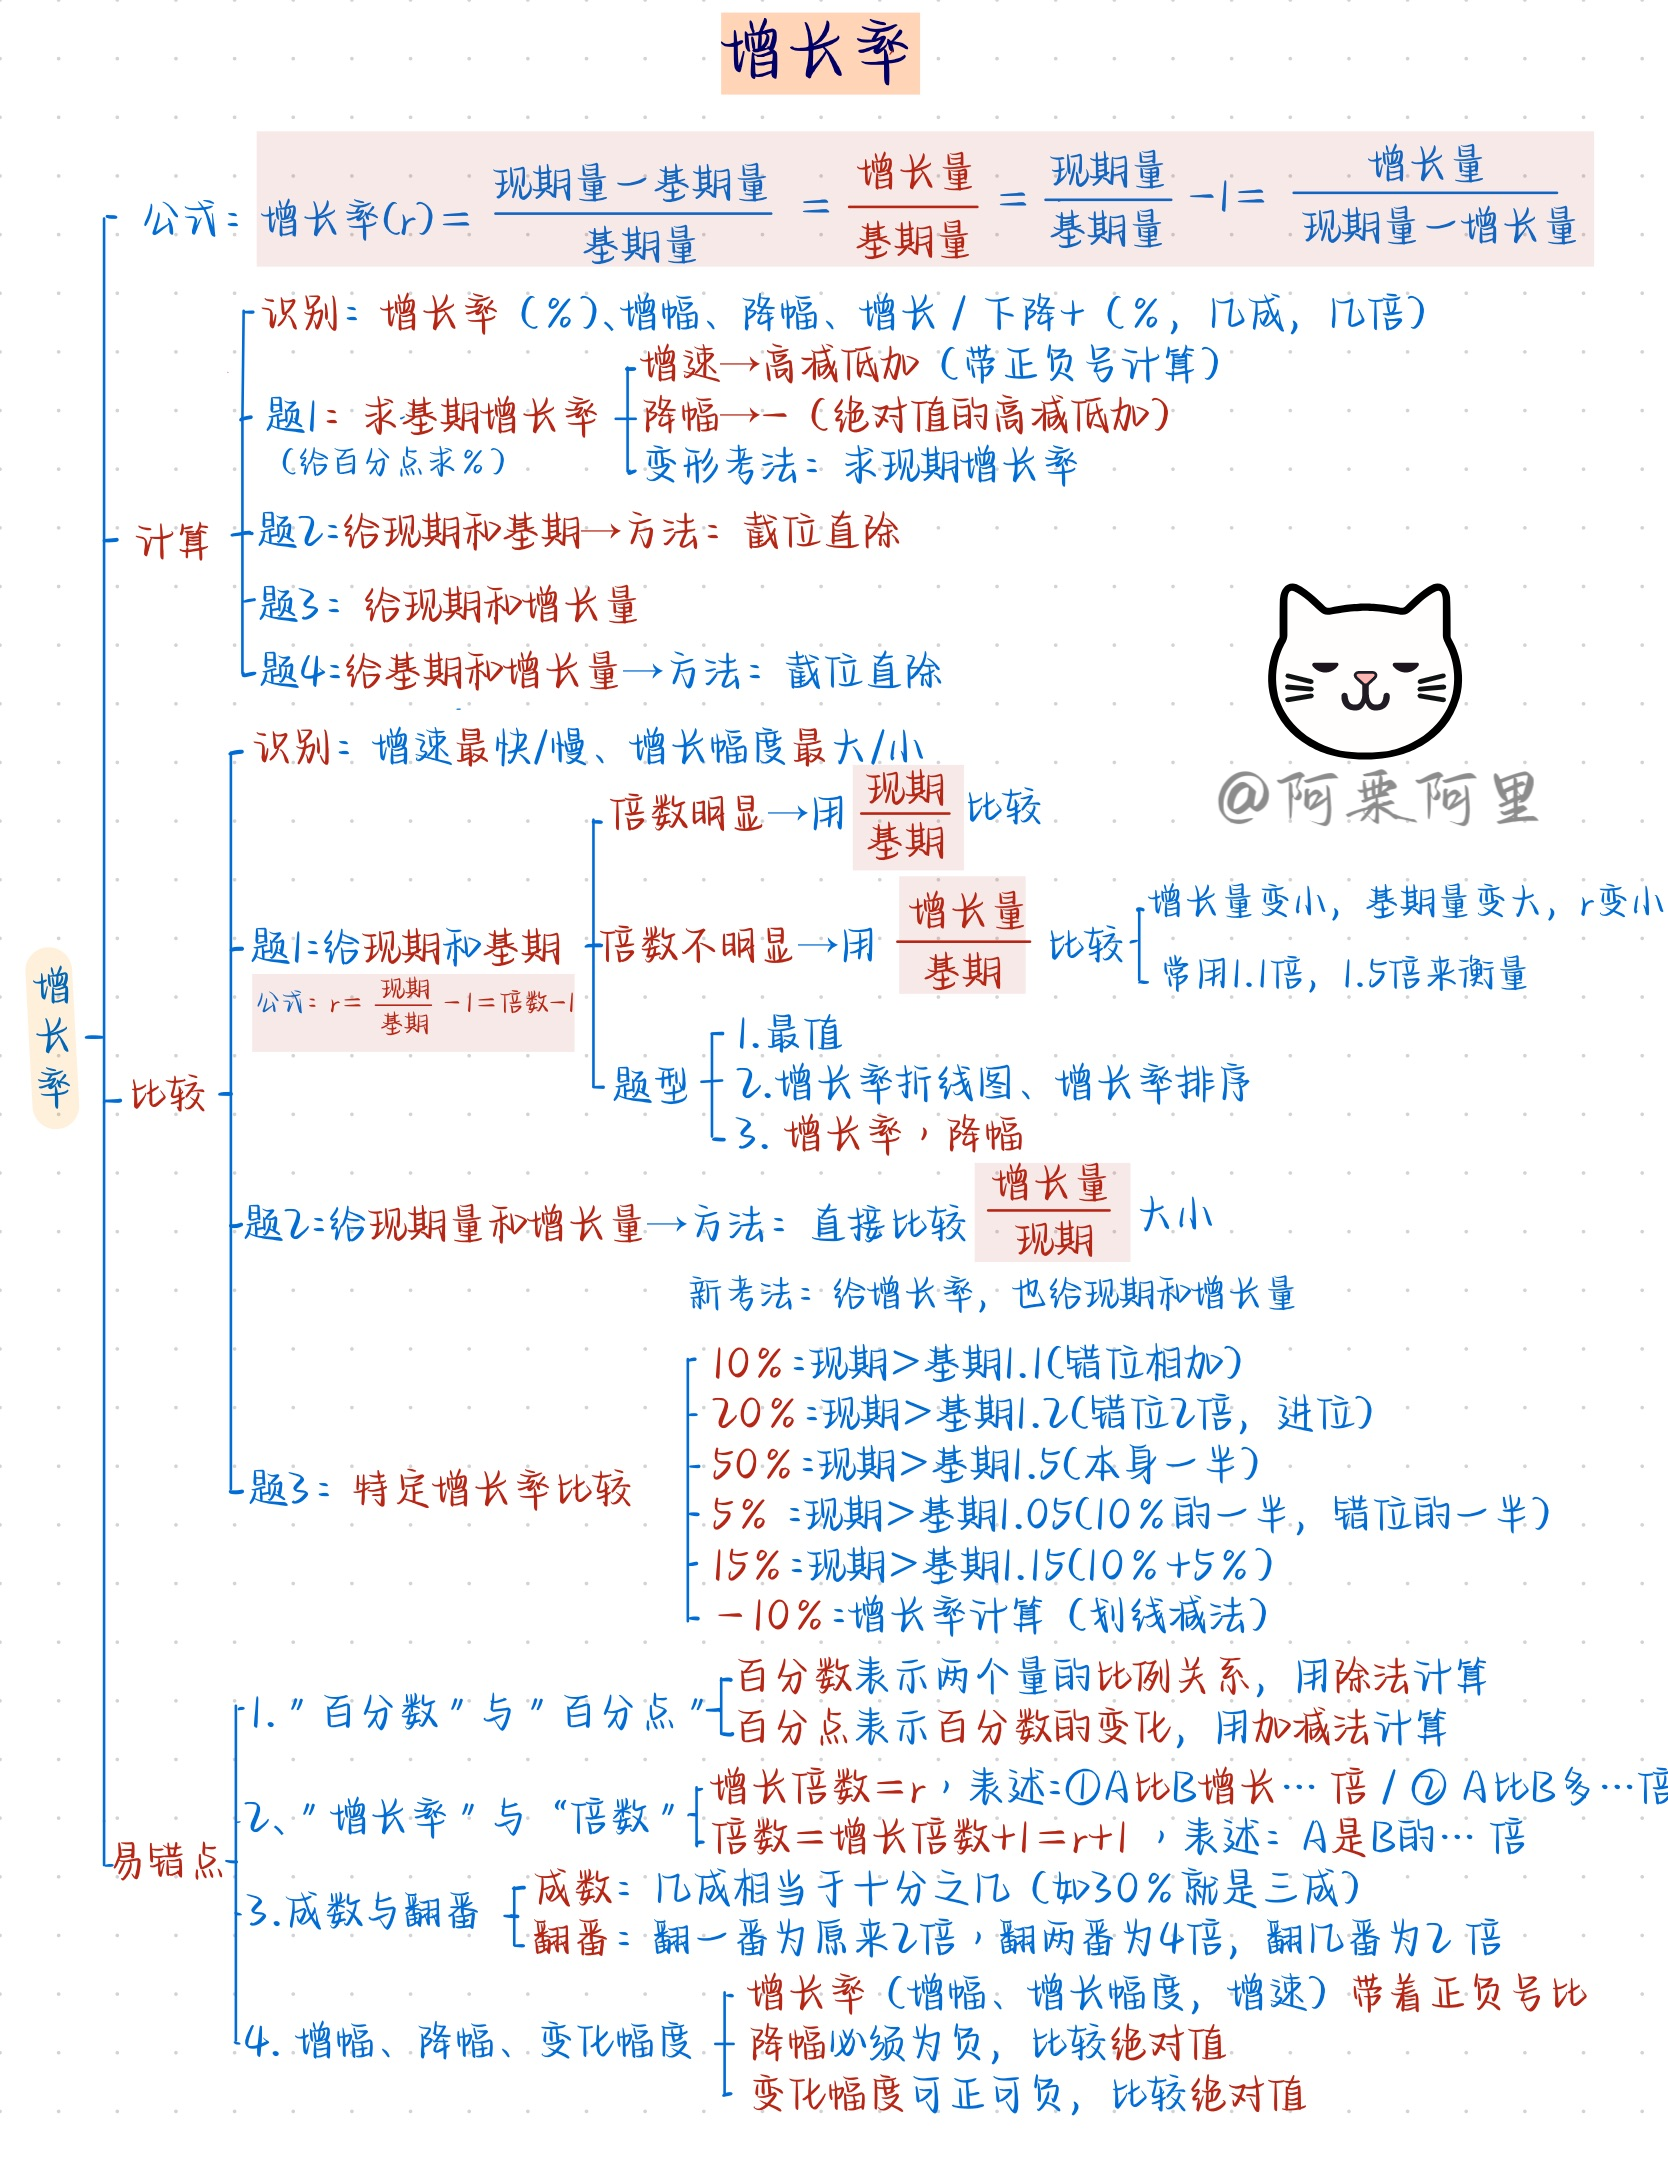 增长率
公式：增长率(r)= 现期量－基期量/基期量 = 增长量/基期量 = 现期量/基期量 -1= 增长量/现期量－增长量
识别：增长率（%）、增幅、降幅、增长/下降+（%，几成，几倍）
增速→高减低加（带正负号计算）
题1：求基期增长率
降幅→－（绝对值的高减低加）
（给百分点求%）
变形考法：求现期增长率
计算
题2:给现期和基期→方法：截位直除
题3：给现期和增长量
题4:给基期和增长量→方法：截位直除
@阿粟阿里
识别：增速最快/慢、增长幅度最大/小
倍数明显→用 现期/基期 比较
题1:给现期和基期
公式：r= 现期/基期 -1=倍数-1
倍数不明显→用 增长量/基期 比较
增长量变小，基期量变大，r变小
常用1.1倍，1.5倍来衡量
题型
1.最值
2.增长率折线图、增长率排序
3. 增长率，降幅
增长率
比较
题2:给现期量和增长量→方法：直接比较 增长量/现期 大小
新考法：给增长率，也给现期和增长量
题3：特定增长率比较
10%:现期>基期1.1(错位相加)
20%:现期>基期1.2(错位2倍，进位)
50%:现期>基期1.5(本身一半)
5% :现期>基期1.05(10%的一半，错位的一半)
15%:现期>基期1.15(10%+5%)
-10%:增长率计算（划线减法）
易错点
1."百分数"与"百分点"
百分数表示两个量的比例关系，用除法计算
百分点表示百分数的变化，用加减法计算
2、"增长率"与“倍数"
增长倍数=r，表述:①A比B增长…倍/② A比B多…倍
倍数=增长倍数+1=r+1，表述：A是B的…倍
3.成数与翻番
成数：几成相当于十分之几（如30%就是三成）
翻番：翻一番为原来2倍，翻两番为4倍，翻几番为2 倍
4. 增幅、降幅、变化幅度
增长率（增幅、增长幅度，增速）带着正负号比
降幅必须为负，比较绝对值
变化幅度可正可负，比较绝对值